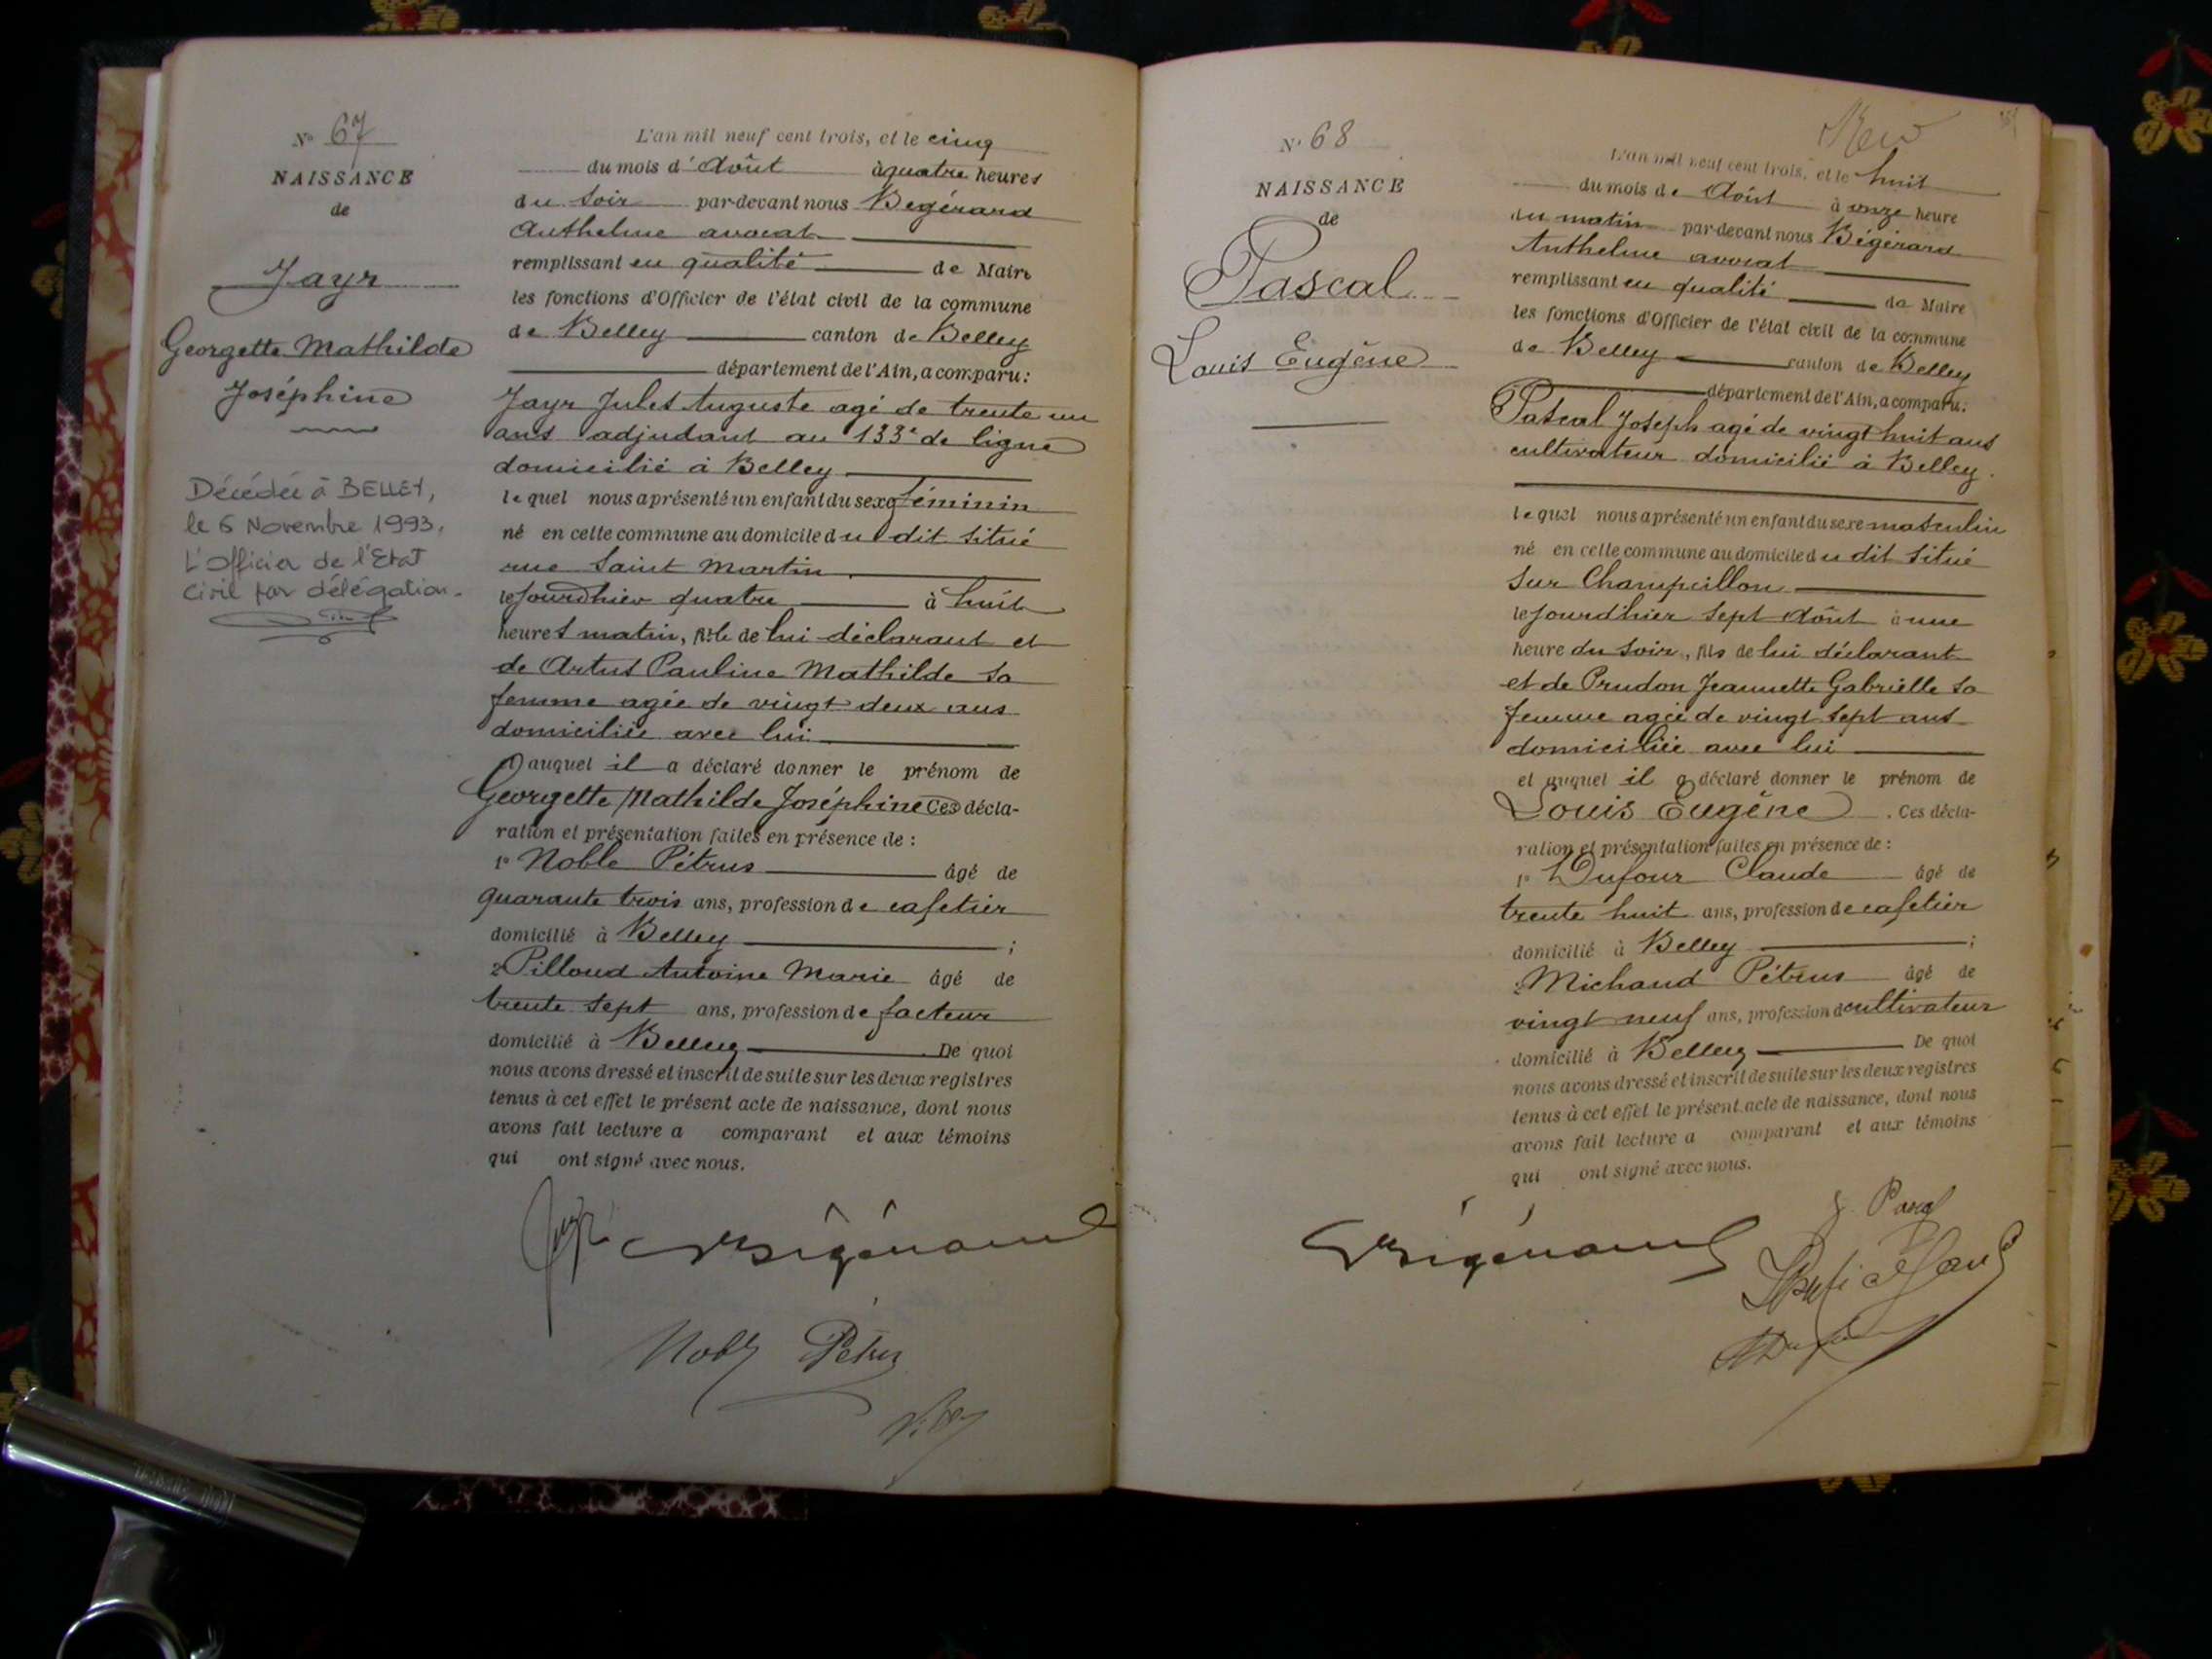 N° 67
NAISSANCE
de
Jayr
Georgette Mathilde
Joséphine
Décédée à BELLEY,
le 6 Novembre 1993.
L'officier de l'Etat
Civil par délégation.
L'an mil neuf cent trois, et le cinq
du mois d'Août à quatre heures
du soir par-devant nous Bégérard
Anthelme avocat
remplissant en qualité de Maire
les fonctions d'Officier de l'état civil de la commune
de Belley canton de Belley
département de l'Ain, a comparu:
Jayr Jules Auguste agé de trente un
ans adjudant au 133e de ligne
domicilié à Belley
lequel nous a présenté un enfant du sexe féminin
né en cette commune au domicile du dit situé
rue Saint Martin
le jour d'hier quatre à huit
heures matin, fille de lui déclarant et
de Artus Pauline Mathilde sa
femme agée de vingt deux ans
domiciliée avec lui
auquel il a déclaré donner le prénom de
Georgette Mathilde Joséphine Ces décla-
ration et présentation faites en présence de :
1° Noble Pétrus âgé de
quarante trois ans, profession de cafetier
domicilié à Belley ;
2° Pilloud Antoine Marie âgé de
trente sept ans, profession de facteur
domicilié à Belley De quoi
nous avons dressé et inscrit de suite sur les deux registres
tenus à cet effet le présent acte de naissance, dont nous
avons fait lecture a comparant et aux témoins
qui ont signé avec nous.
Jayr Bégérard
Noble Pétrus
N° 68
NAISSANCE
de
Pascal
Louis Eugène
L'an mil neuf cent trois, et le huit
du mois de Août à onze heure
du matin par-devant nous Bégérard
Anthelme avocat
remplissant en qualité de Maire
les fonctions d'Officier de l'état civil de la commune
de Belley canton de Belley
département de l'Ain, a comparu:
Pascal Joseph agé de vingt huit ans
cultivateur domicilié à Belley.
lequel nous a présenté un enfant du sexe masculin
né en cette commune au domicile du dit situé
sur Champeillon
le jour d'hier sept Août à une
heure du soir, fils de lui déclarant
et de Prudon Jeannette Gabrielle sa
femme agée de vingt sept ans
domiciliée avec lui
et auquel il a déclaré donner le prénom de
Louis Eugène . Ces décla-
ration et présentation faites en présence de :
1° Dufour Claude âgé de
trente huit ans, profession de cafetier
domicilié à Belley ;
2° Michaud Pétrus âgé de
vingt neuf ans, profession d cultivateur
domicilié à Belley De quoi
nous avons dressé et inscrit de suite sur les deux registres
tenus à cet effet le présent acte de naissance, dont nous
avons fait lecture a comparant et aux témoins
qui ont signé avec nous.
J. Pascal
Bégérard